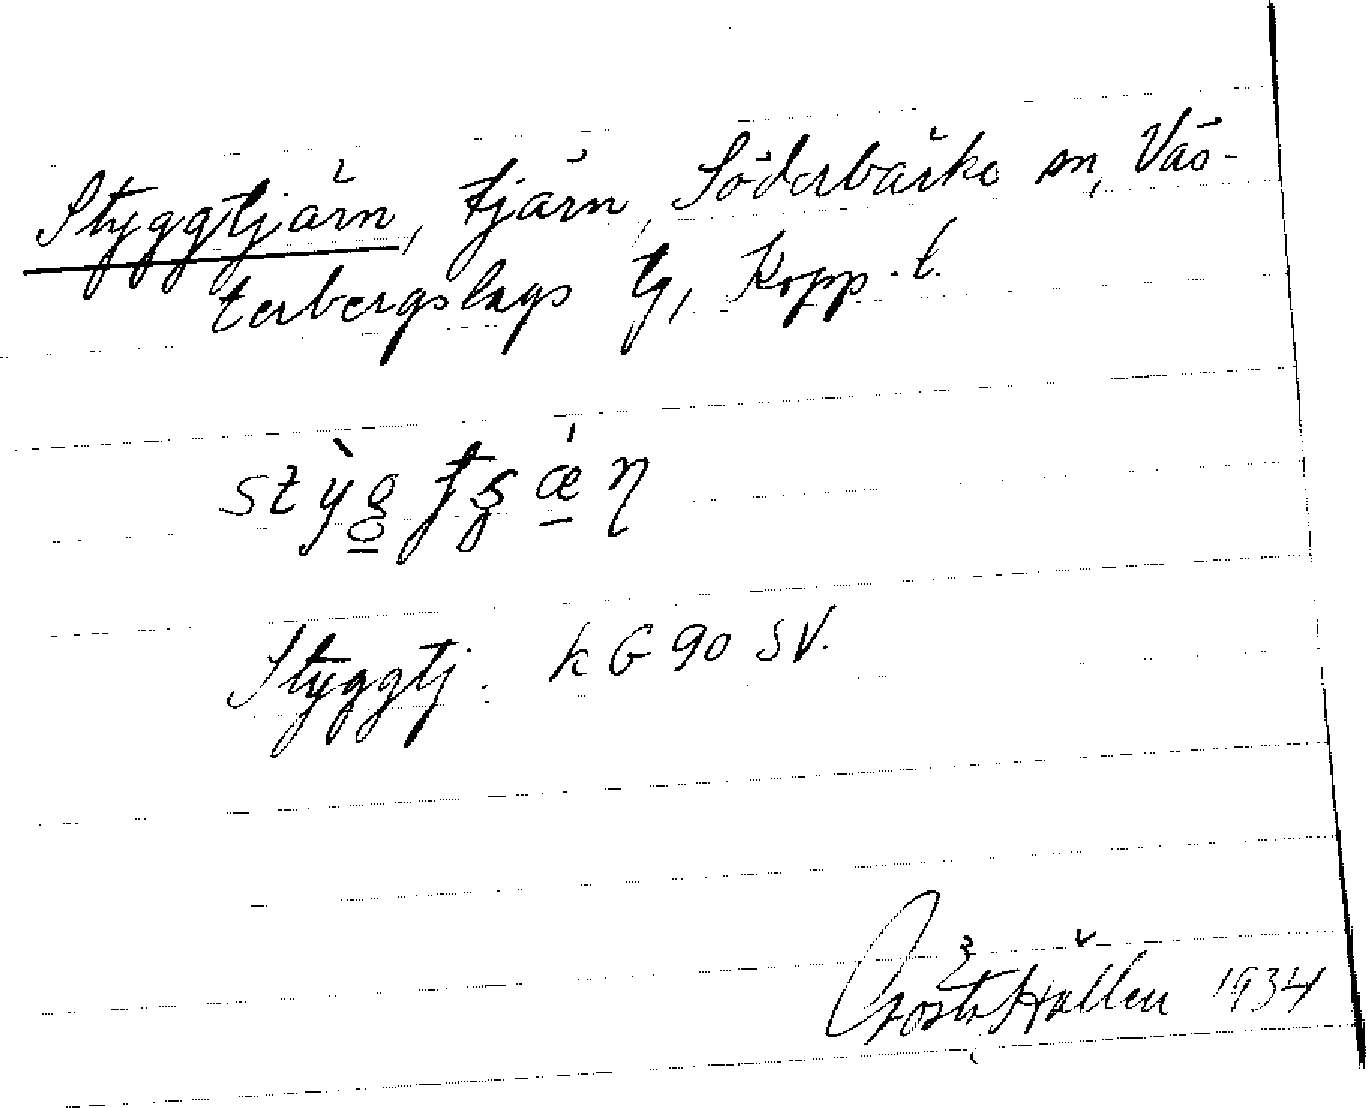 Styggtjärn, tjärn, Söderbärke sn, Väs-
terbergslags tg, Kopp. l.
Styggtj. k G 90 SV.
Gösta Hallén 1934